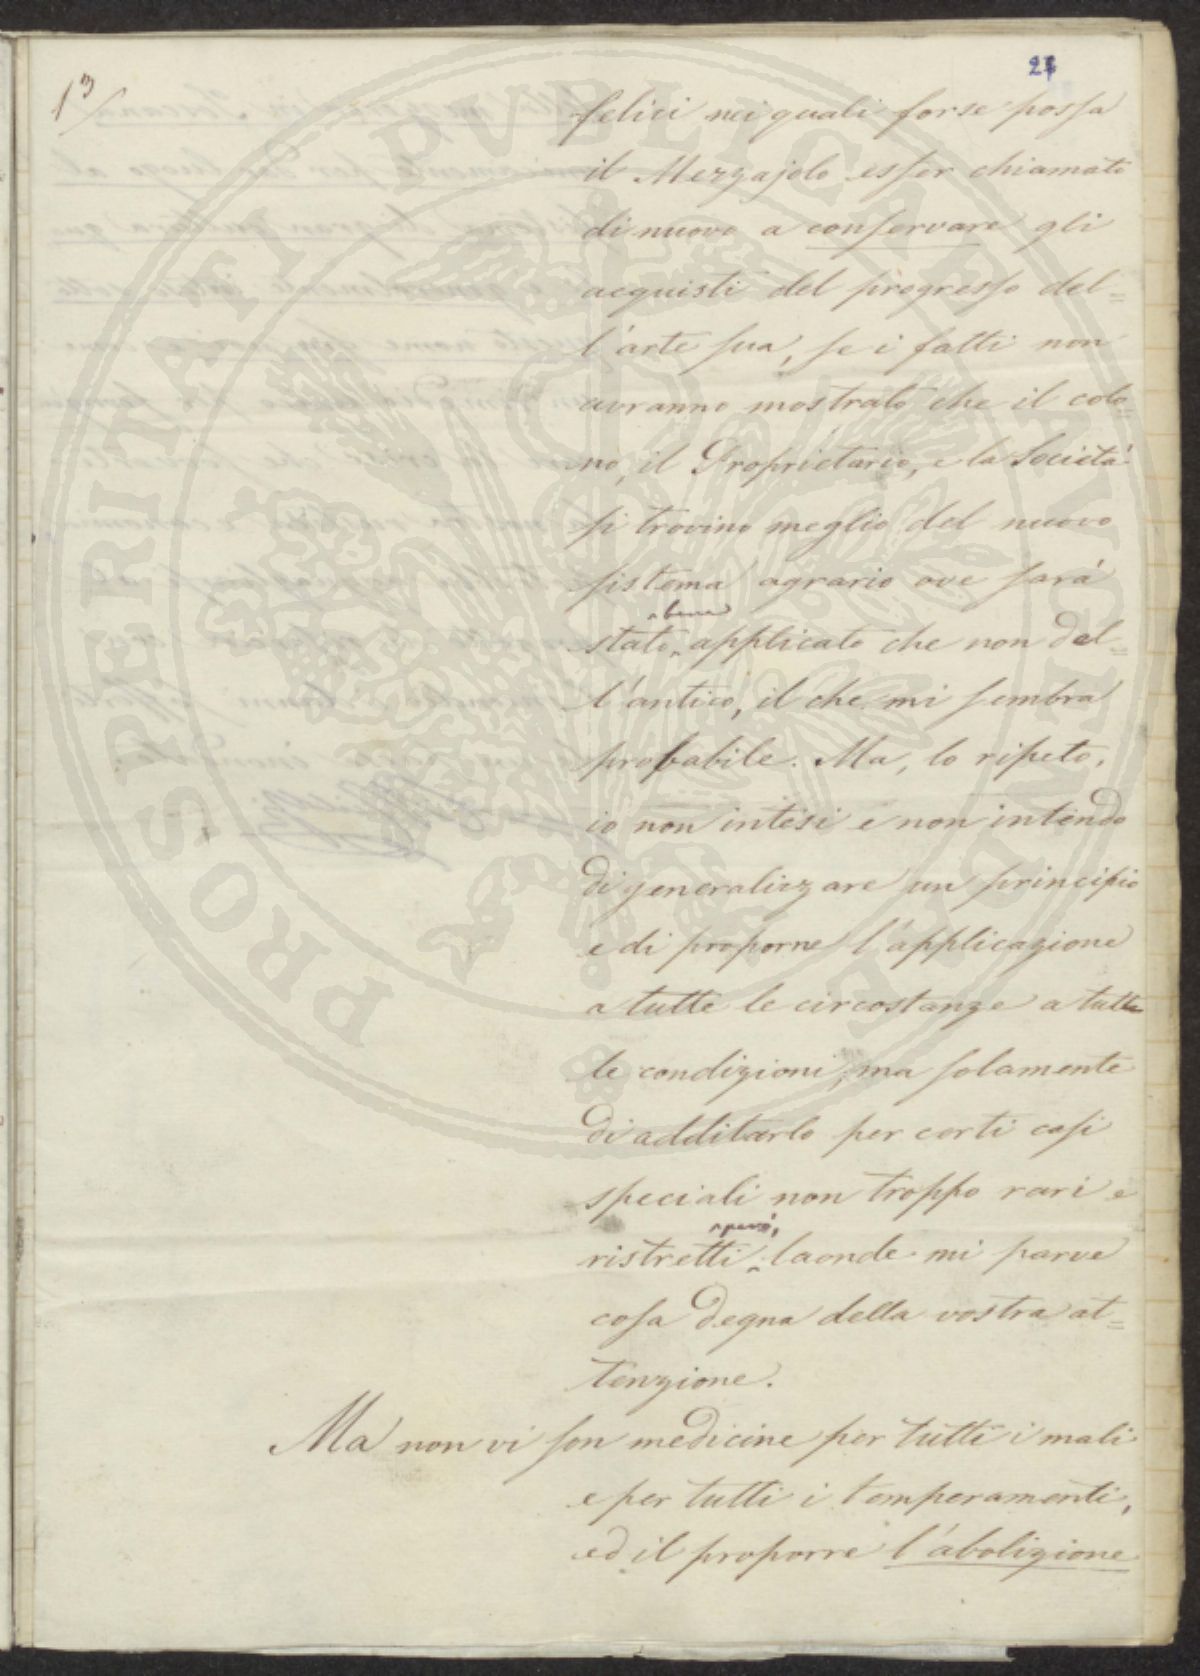 13/
27
felici nei quali forse possa
il Mezzajolo esser chiamato
di nuovo a conservare gli
acquisti del progresso del=
l'arte sua, se i fatti non
avranno mostrato che il colo
no, il Proprietario, e la Società
si trovino meglio del nuovo
sistema agrario ove sarà
bene
stato applicato che non del=
l'antico, il che mi sembra
probabile. Ma, lo ripeto,
io non intesi e non intendo
di generalizzare un principio
e di proporne l'applicazione
a tutte le circostanze a tutte
le condizioni, ma solamente
di additarlo per certi casi
speciali non troppo rari e
però,
ristretti; laonde mi parve
cosa degna della vostra at=
tenzione.
Ma non vi son medicine per tutti i mali
e per tutti i temperamenti,
ed il proporre l'abolizione
PROSPERITATI PVBLICAE AVGENDAE